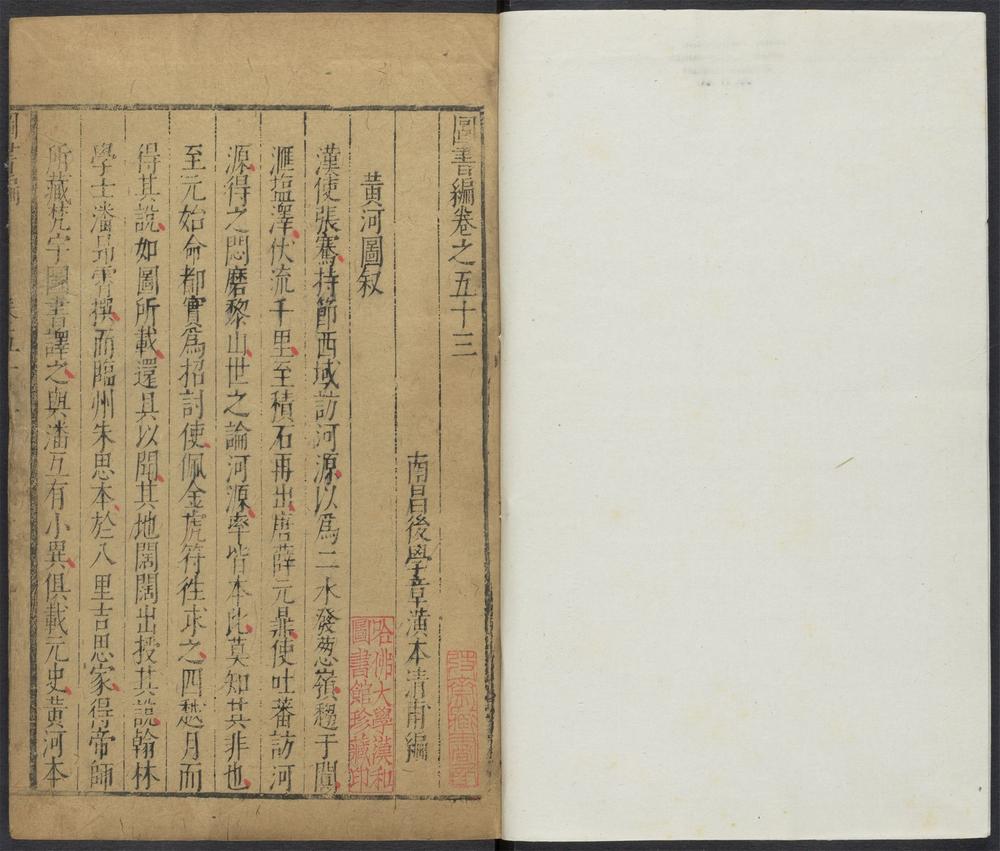 圖書編卷之五十三
南昌後學章潢本清甫編
黃河圖叙
漢使張騫持節西域訪河源以爲二水發葱嶺趨于闐
滙塩澤伏流千里至積石再出唐薛元鼎使吐蕃訪河
源得之悶磨黎山世之論河源率皆本此莫知其非也
至元始命都實爲招討使佩金虎符徃求之四越月而
得其說如圖所載還具以聞其地闊闊出授其說翰林
學士潘昻霄撰而臨州朱思本於八里吉思家得帝師
所藏梵字圖書譯之與潘互有小異俱載元史黃河本
圖書編
哈佛大學漢和
圖書館珍藏印